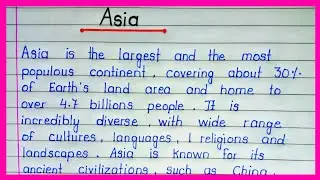 Asia
Asia is the largest and the most
populous continent, covering about 30%
of Earth's land area and home to
over 4.7 billions people. It is
incredibly diverse, with wide range
of cultures, languages, religions and
landscapes. Asia is known for its
ancient civilizations, such as China,